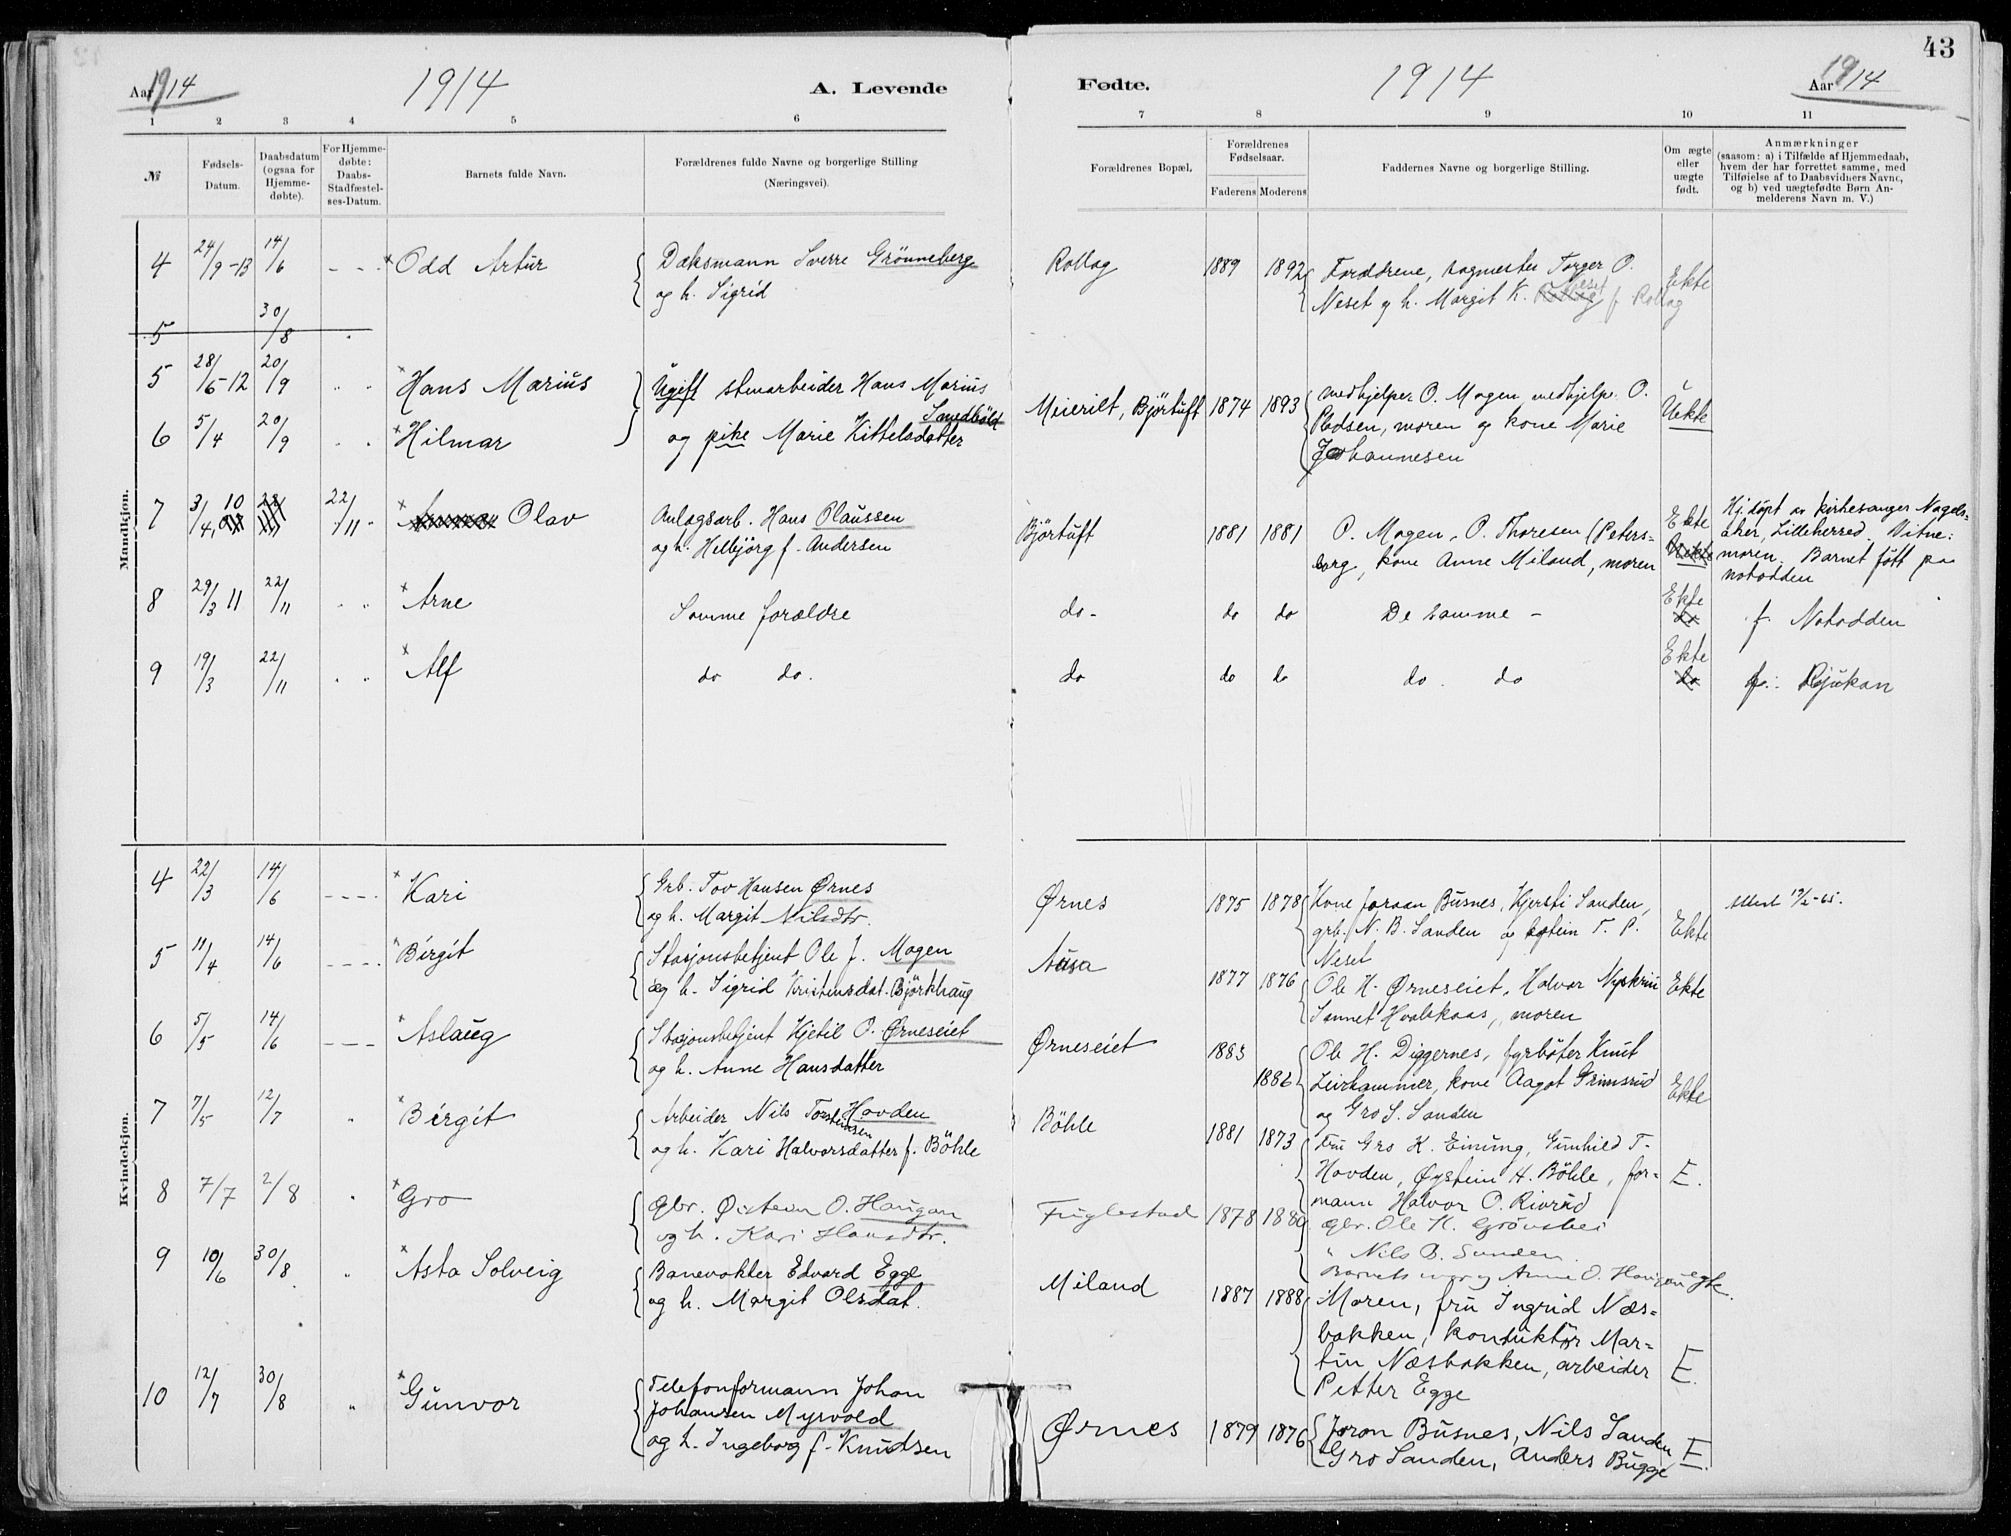 43
Aar 1914 1914 A. Levende Fødte. 1914 Aar 1914
1 2 3 4 5 6 7 8 9 10 11
№ Fødsels-Datum. Daabsdatum (ogsaa for Hjemme-døbte). For Hjemme-døbte: Daabs-Stadfæstel-ses-Datum. Barnets fulde Navn. Forældrenes fulde Navne og borgerlige Stilling (Næringsvei). Forældrenes Bopæl. Forældrenes Fødselsaar. Faderens Moderens Faddernes Navne og borgerlige Stilling. Om ægte eller uægte født. Anmærkninger (saasom: a) i Tilfælde af Hjemmedaab, hvem der har forrettet samme, med Tilføielse af to Daabsvidners Navne, og b) ved uægtefødte Børn An-melderens Navn m. V.)
Mandkjøn.
4 24/9-13 14/6 Odd Artur
Dæksmann Sverre Grönneberg
og h. Sigrid
Rollag 1889 1892
Forældrene, Torger O.
Neset og h. Margit K. Neset f. Rollag
Ekte
5 30/8
5 28/6-12 20/9 Hans Marius
6 5/4 20/9 Hilmar
Ugift stenarbeider Hans Marius
Smedböld
og pike Marie Kittelsdatter
Meierilt, Björtuft 1874 1893
medhjelper O. Mogen, medhjelp. O.
moren og kone Marie
Johannesen
Uekte
7 3/4 10 22/11 Olav
Anlagsarb. Hans Olaussen
og h. Helbjörg f. Andersen
Björtuft 1881 1881
O. Mogen, O. Thoresen (Peters-
borg, kone Anne Miland, moren
Ekte
Hj.döpt av kirkesanger Nagels-
aker, Lilleherred. Vitne:
moren. Barnet fött paa
notodden
8 29/3 11 22/11 Arne
Samme forældre
do- do do De samme - Ekte f. Notodden
9 19/3 22/11 Alf
do do. do do do do. do Ekte f. Rjukan
Kvindekjøn.
4 22/3 14/6 Kari
Grb. Tov Hansen Ørnes
og h. Margit Nilsdtr.
Ørnes 1875 1878
Kone Joraan Busnes, Kjersti Sanden,
grb. N. B. Sanden og T. P.
Neset
Ekte
5 11/4 14/6 Birgit
Stasjonsbetjent Ole J. Mogen
og h. Sigrid Kristensdat. Björkhaug
1877 1876
Ole H. Ørneseiet, Halvor Nyskrin
Sannet Hvalskaas, moren
Ekte
6 5/5 14/6 Aslaug
Stasjonsbetjent Kjetil O. Ørneseiet
og h. Anne Hansdatter
Ørneseiet 1883 1886
Ole H. Diggernes, fyrböter Knut
Leirhammer, kone Aagot Grimsrud
og Gro S. Sanden
Ekte
7 7/5 12/7 Birgit
Arbeider Nils Torsteinsen Hovden
og h. Kari Halvorsdatter f. Böhle
Böhle 1881 1873
Fru Gro K. Einung, Gunhild T.
Hovden, Øystein H. Böhle, for-
mann Halvor O. Rivrud
E.
8 7/7 2/8 Gro
Gbr. Øistein O. Haugan
og h. Kari Hansdtr.
Fuglestad 1878 1880
Gbr. Ole H. Grövshei
" Nils B. Sanden.
Barnets mor og Anne O. Haugan
egte.
9 10/6 30/8 Asta Solveig
Banevokter Edvard Egge
og h. Margit Olsdat.
Miland 1887 1888
Moren, fru Ingrid Næs-
bakken, konduktör Mar-
tin Næsbakken, arbeider
Petter Egge
E.
10 12/7 30/8 Gunvor
Telefonformann Johan
Johansen Myrvold
og h. Ingeborg f. Knudsen
Ørnes 1879 1876
Joron Busnes, Nils Sanden
Gro Sanden, Anders Bugge
E.